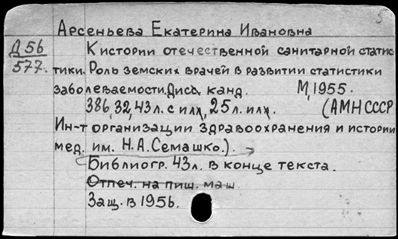 Арсеньева Екатерина Ивановна
Д56
577.
К истории отечественной санитарной статис-
тики. Роль земских врачей в развитии статистики
заболеваемости. Дисс. канд. М, 1955.
386, 32, 43 л. с илл, 25 л. илл. (АМН СССР
Ин-т организации здравоохранения и истории
мед. им. Н.А. Семашко.).
Библиогр. 43 л. в конце текста.
Отпеч. на пиш. маш
Защ. в 1956.